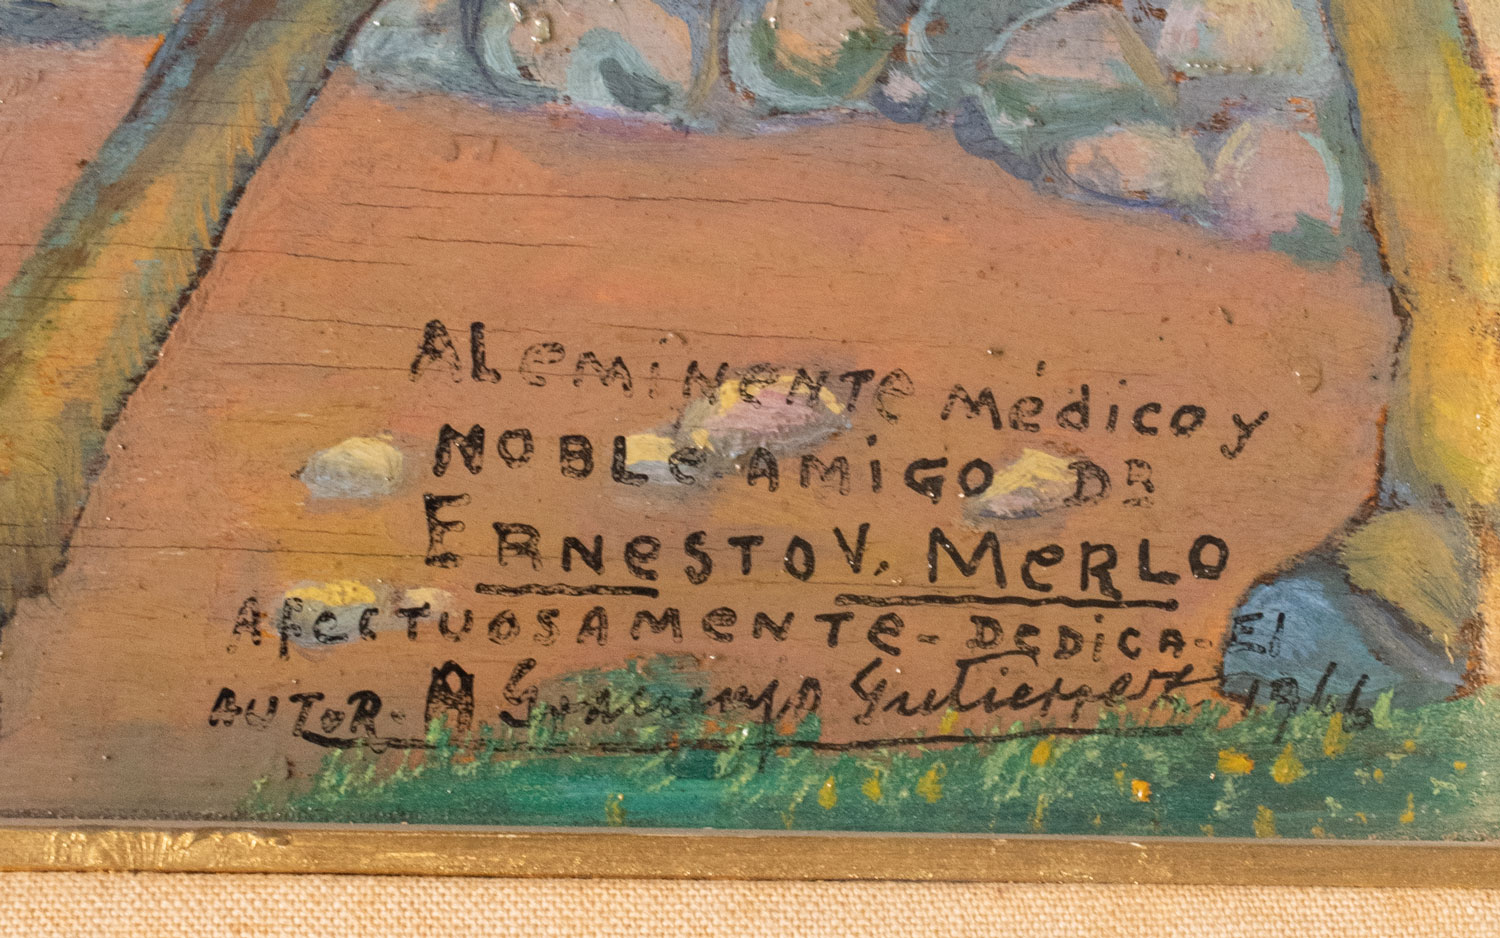 Al eminente médico y
noble amigo DR
Ernesto V. Merlo
Afectuosamente - Dedica - El
autor - A Gutierrez 1966